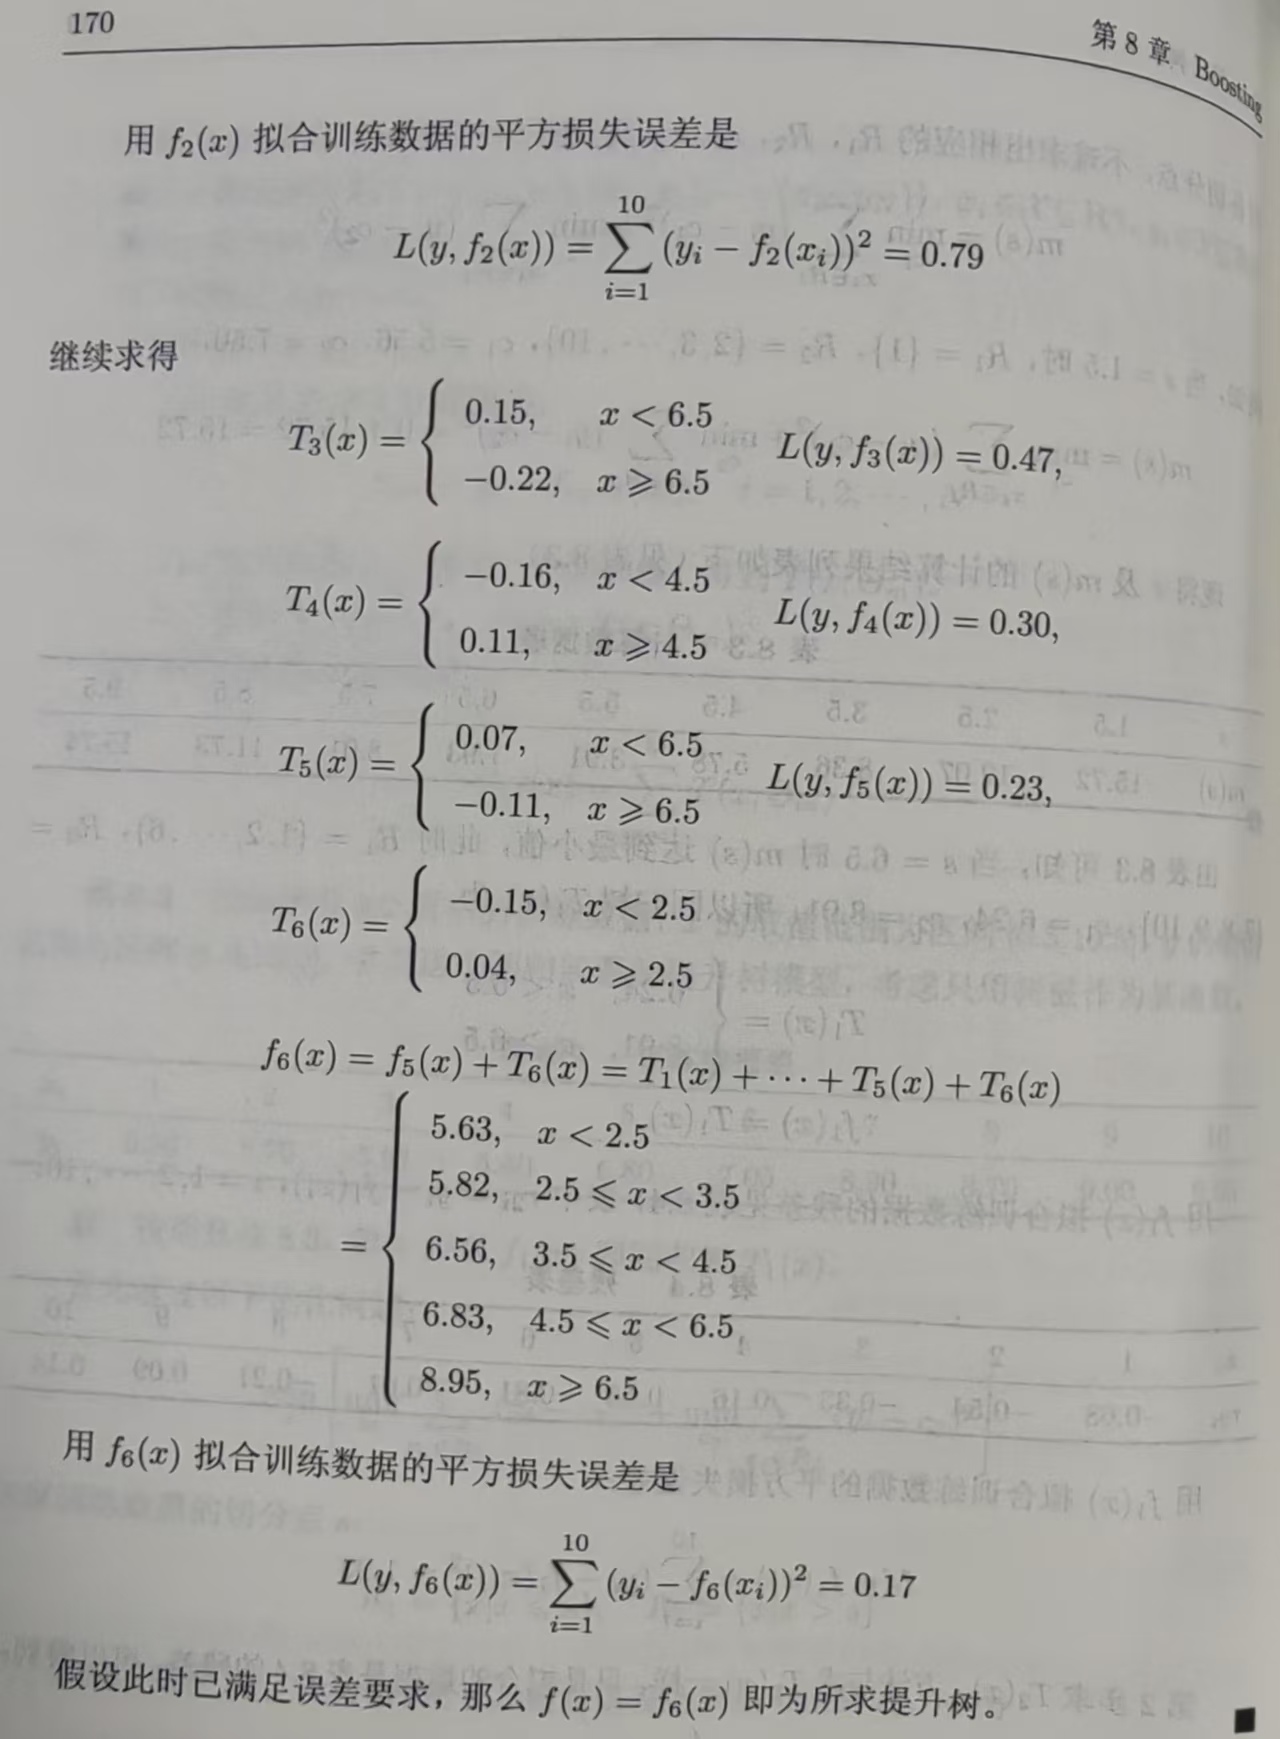 170
第 8 章 Boosting
用 f₂(x) 拟合训练数据的平方损失误差是
L(y, f₂(x)) = ∑_{i=1}^{10} (yᵢ − f₂(xᵢ))² = 0.79
继续求得
T₃(x) = { 0.15, x < 6.5
−0.22, x ⩾ 6.5 L(y, f₃(x)) = 0.47,
T₄(x) = { −0.16, x < 4.5
0.11, x ⩾ 4.5 L(y, f₄(x)) = 0.30,
T₅(x) = { 0.07, x < 6.5
−0.11, x ⩾ 6.5 L(y, f₅(x)) = 0.23,
T₆(x) = { −0.15, x < 2.5
0.04, x ⩾ 2.5
f₆(x) = f₅(x) + T₆(x) = T₁(x) + ⋯ + T₅(x) + T₆(x)
= { 5.63, x < 2.5
5.82, 2.5 ⩽ x < 3.5
6.56, 3.5 ⩽ x < 4.5
6.83, 4.5 ⩽ x < 6.5
8.95, x ⩾ 6.5
用 f₆(x) 拟合训练数据的平方损失误差是
L(y, f₆(x)) = ∑_{i=1}^{10} (yᵢ − f₆(xᵢ))² = 0.17
假设此时已满足误差要求，那么 f(x) = f₆(x) 即为所求提升树。 ■